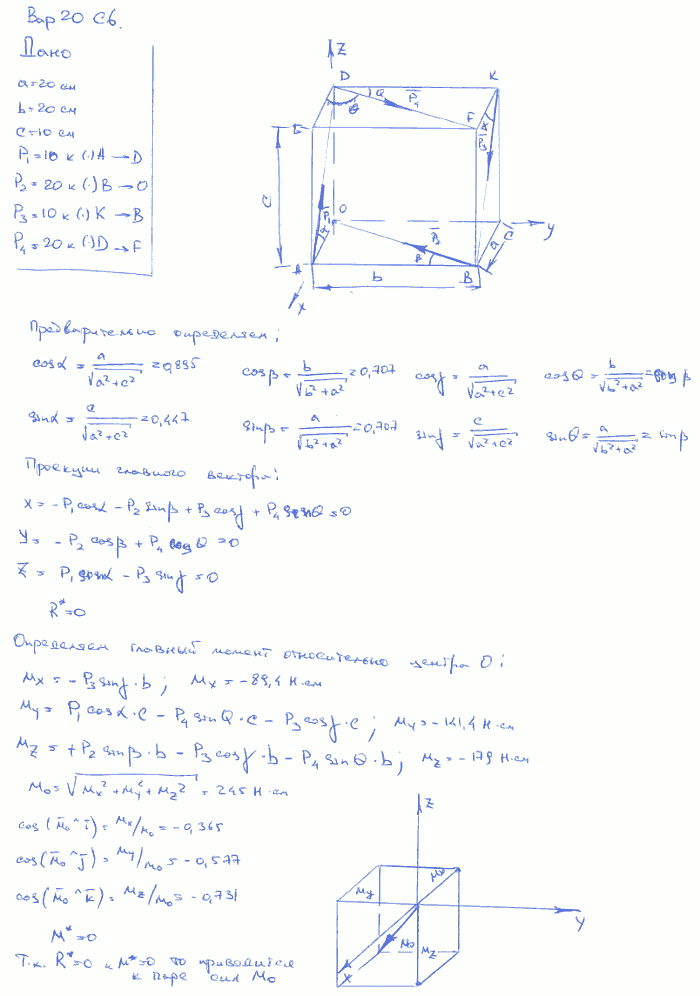 Вар 20 С6.
Дано
a=20 см
b=20 см
c=10 см
P₁=10 н (·)A → D
P₂=20 н (·)B → O
P₃=10 н (·)K → B
P₄=20 н (·)D → F
Z
D
K
Q
P̄₄
θ
F
P̄₃
E
C
P̄₁
O
P̄₂
C
Y
a
A
β
B
b
X
Предварительно определяем:
cosα = a/√(a²+c²) = 0,895 cosβ = b/√(b²+a²) = 0,707 cosγ = a/√(a²+c²) cosθ = b/√(b²+a²) = cosβ
sinα = c/√(a²+c²) = 0,447 sinβ = a/√(b²+a²) = 0,707 sinγ = c/√(a²+c²) sinθ = a/√(b²+a²) = sinβ
Проекции главного вектора:
X = -P₁cosα - P₂sinβ + P₃cosγ + P₄sinθ = 0
Y = -P₂cosβ + P₄cosθ = 0
Z = P₁sinα - P₃sinγ = 0
R*=0
Определяем главный момент относительно центра O:
Mx = -P₃sinγ·b; Mx = -89,4 Н·см
My = P₁cosα·c - P₄sinQ·c - P₃cosγ·c; My = -141,4 Н·см
Mz = +P₂sinβ·b - P₃cosγ·b - P₄sinθ·b; Mz = -179 Н·см
M₀ = √(Mx²+My²+Mz²) = 245 Н·см
cos(M̄₀^ī) = Mx/M₀ = -0,365
cos(M̄₀^j̄) = My/M₀ = -0,577
cos(M̄₀^k̄) = Mz/M₀ = -0,731
M*=0
Т.к. R*=0 и M*=0 то приводится
к паре сил M₀
Z
My
Y
M₀
Mz
X